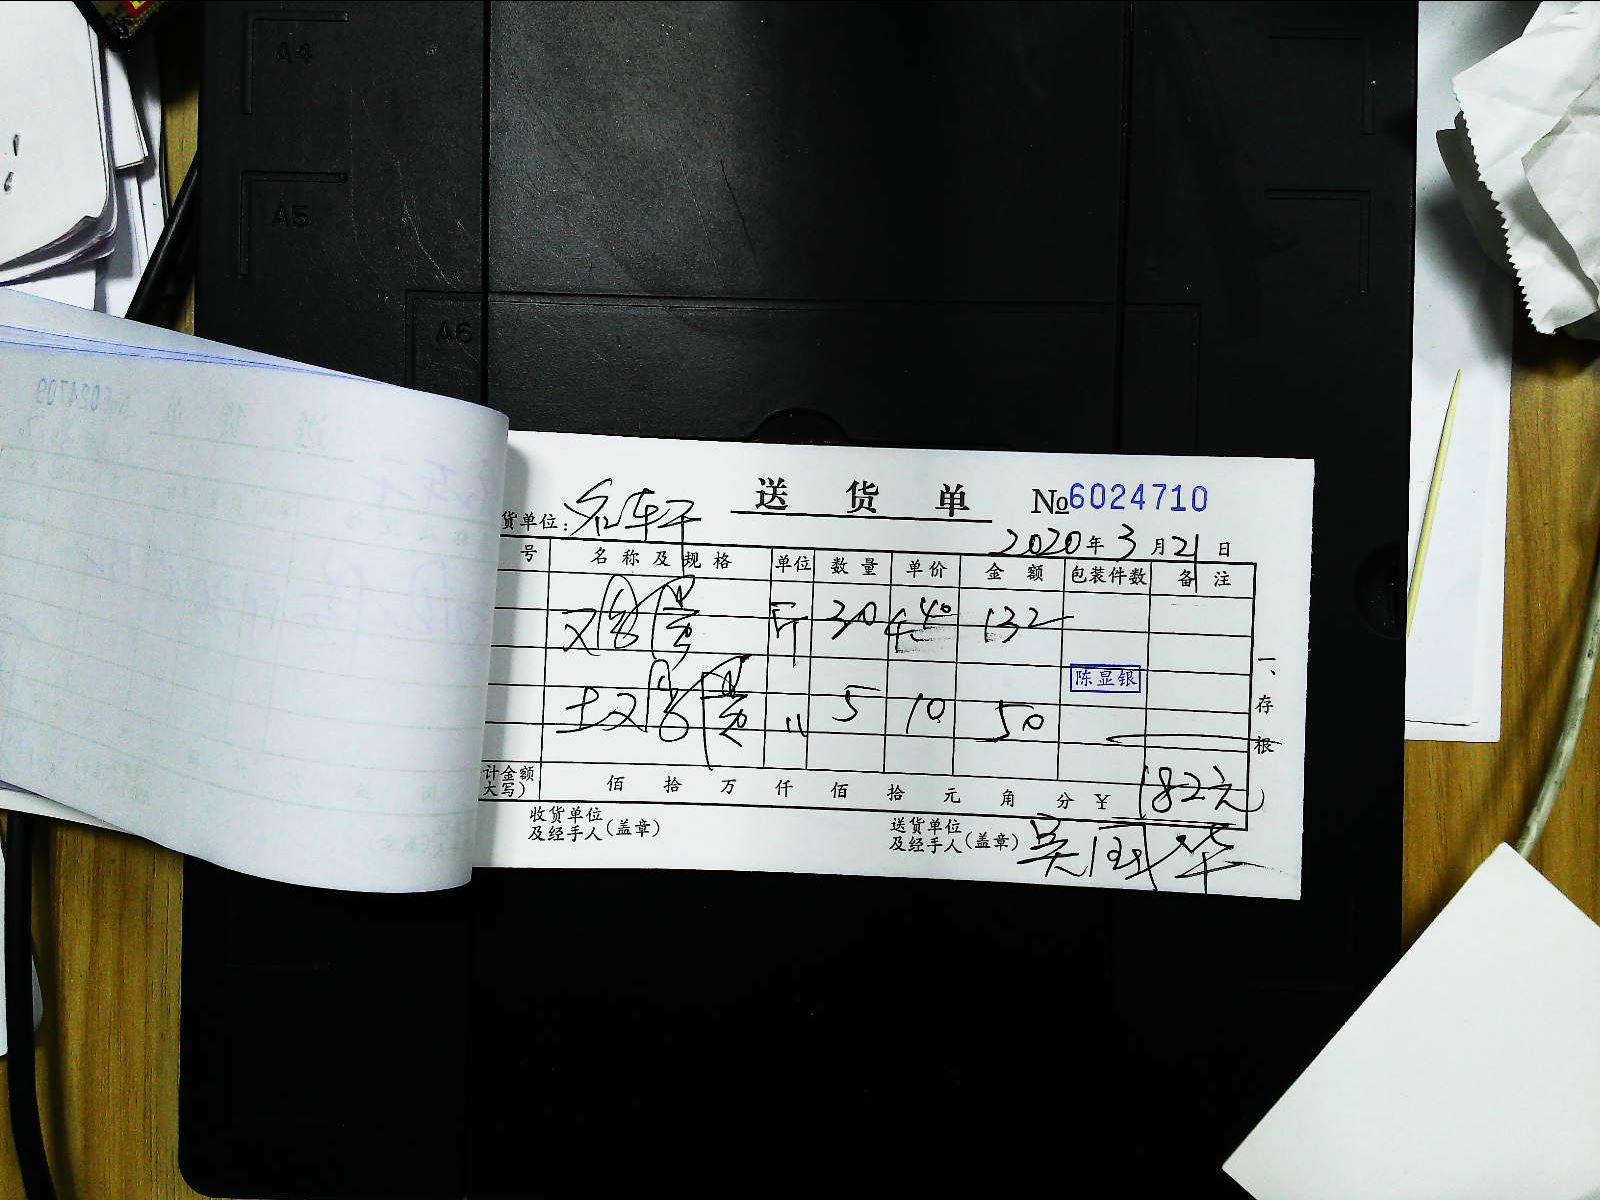 A4
A5
A6
送 货 单 №6024710
货单位：
2020年3月21日
号 名称及规格 单位 数量 单价 金额 包装件数 备注
又鸟蛋 斤 30 4.40 132
陈显银
土又鸟蛋 〃 5 10 50
一、存根
计金额
大写） 佰 拾 万 仟 佰 拾 元 角 分 ¥ 182元
收货单位
及经手人（盖章）
送货单位
及经手人（盖章） 吴国华